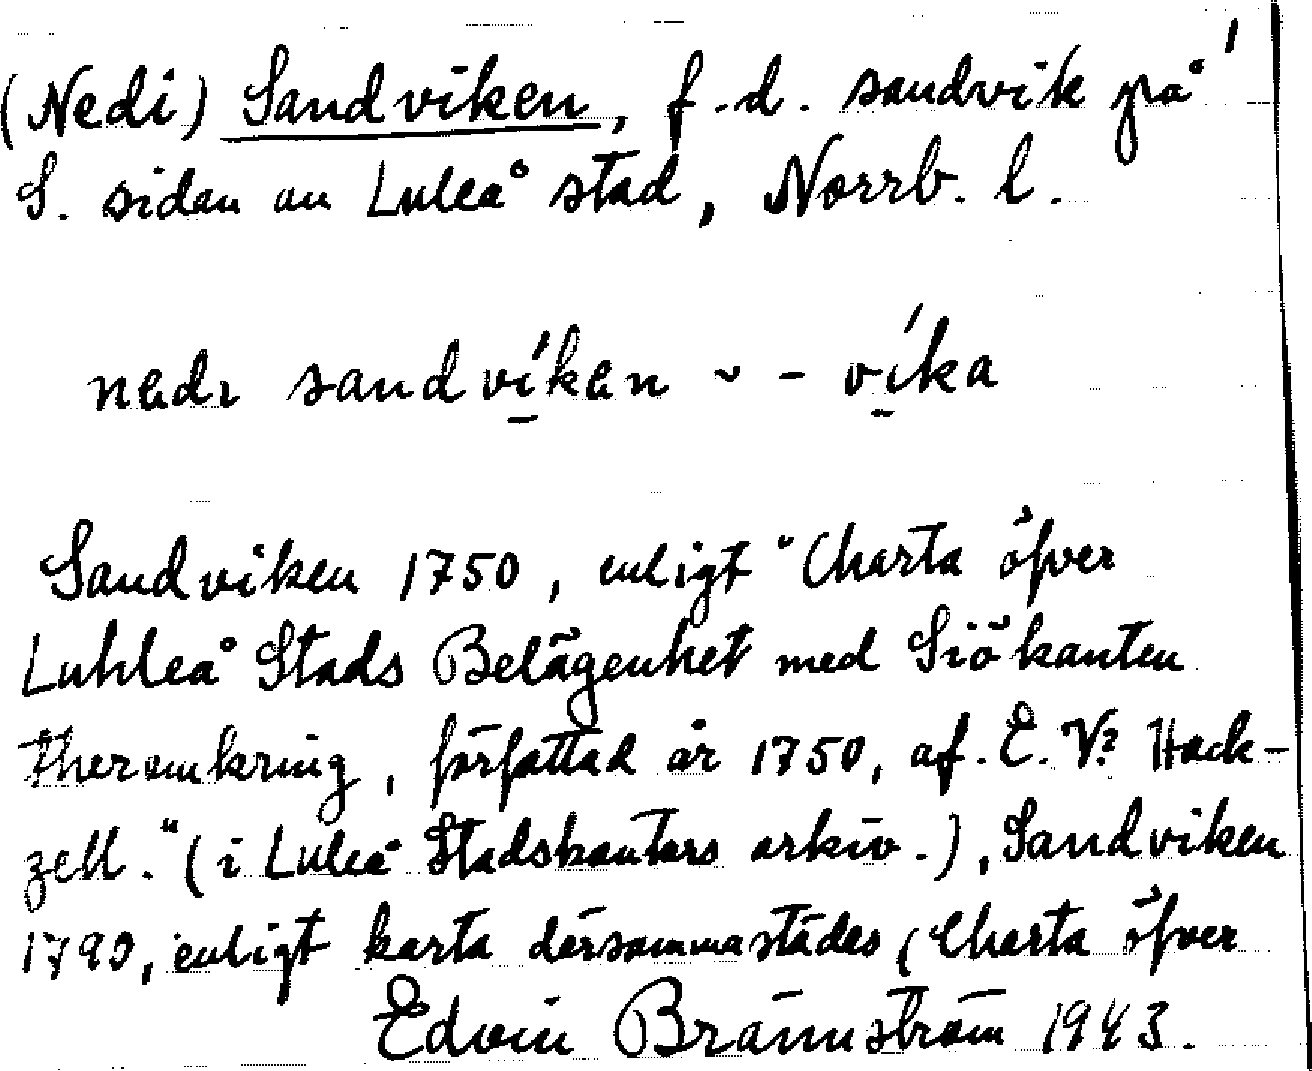 (Nedi) Sandviken, f.d. sandvik på
S. sidan av Luleå stad, Norrb. l.
nedı sandvíken ~ - víka
Sandviken 1750, enligt "Charta öfver
Luhleå Stads Belägenhet med Siökanten
theromkring, författad år 1750, af. E. V? Hack-
zell." (i Luleå Stadskontors arkiv.), Sandviken
1790, enligt karta därsammastädes (Charta öfver
Edvin Brännström 1943.